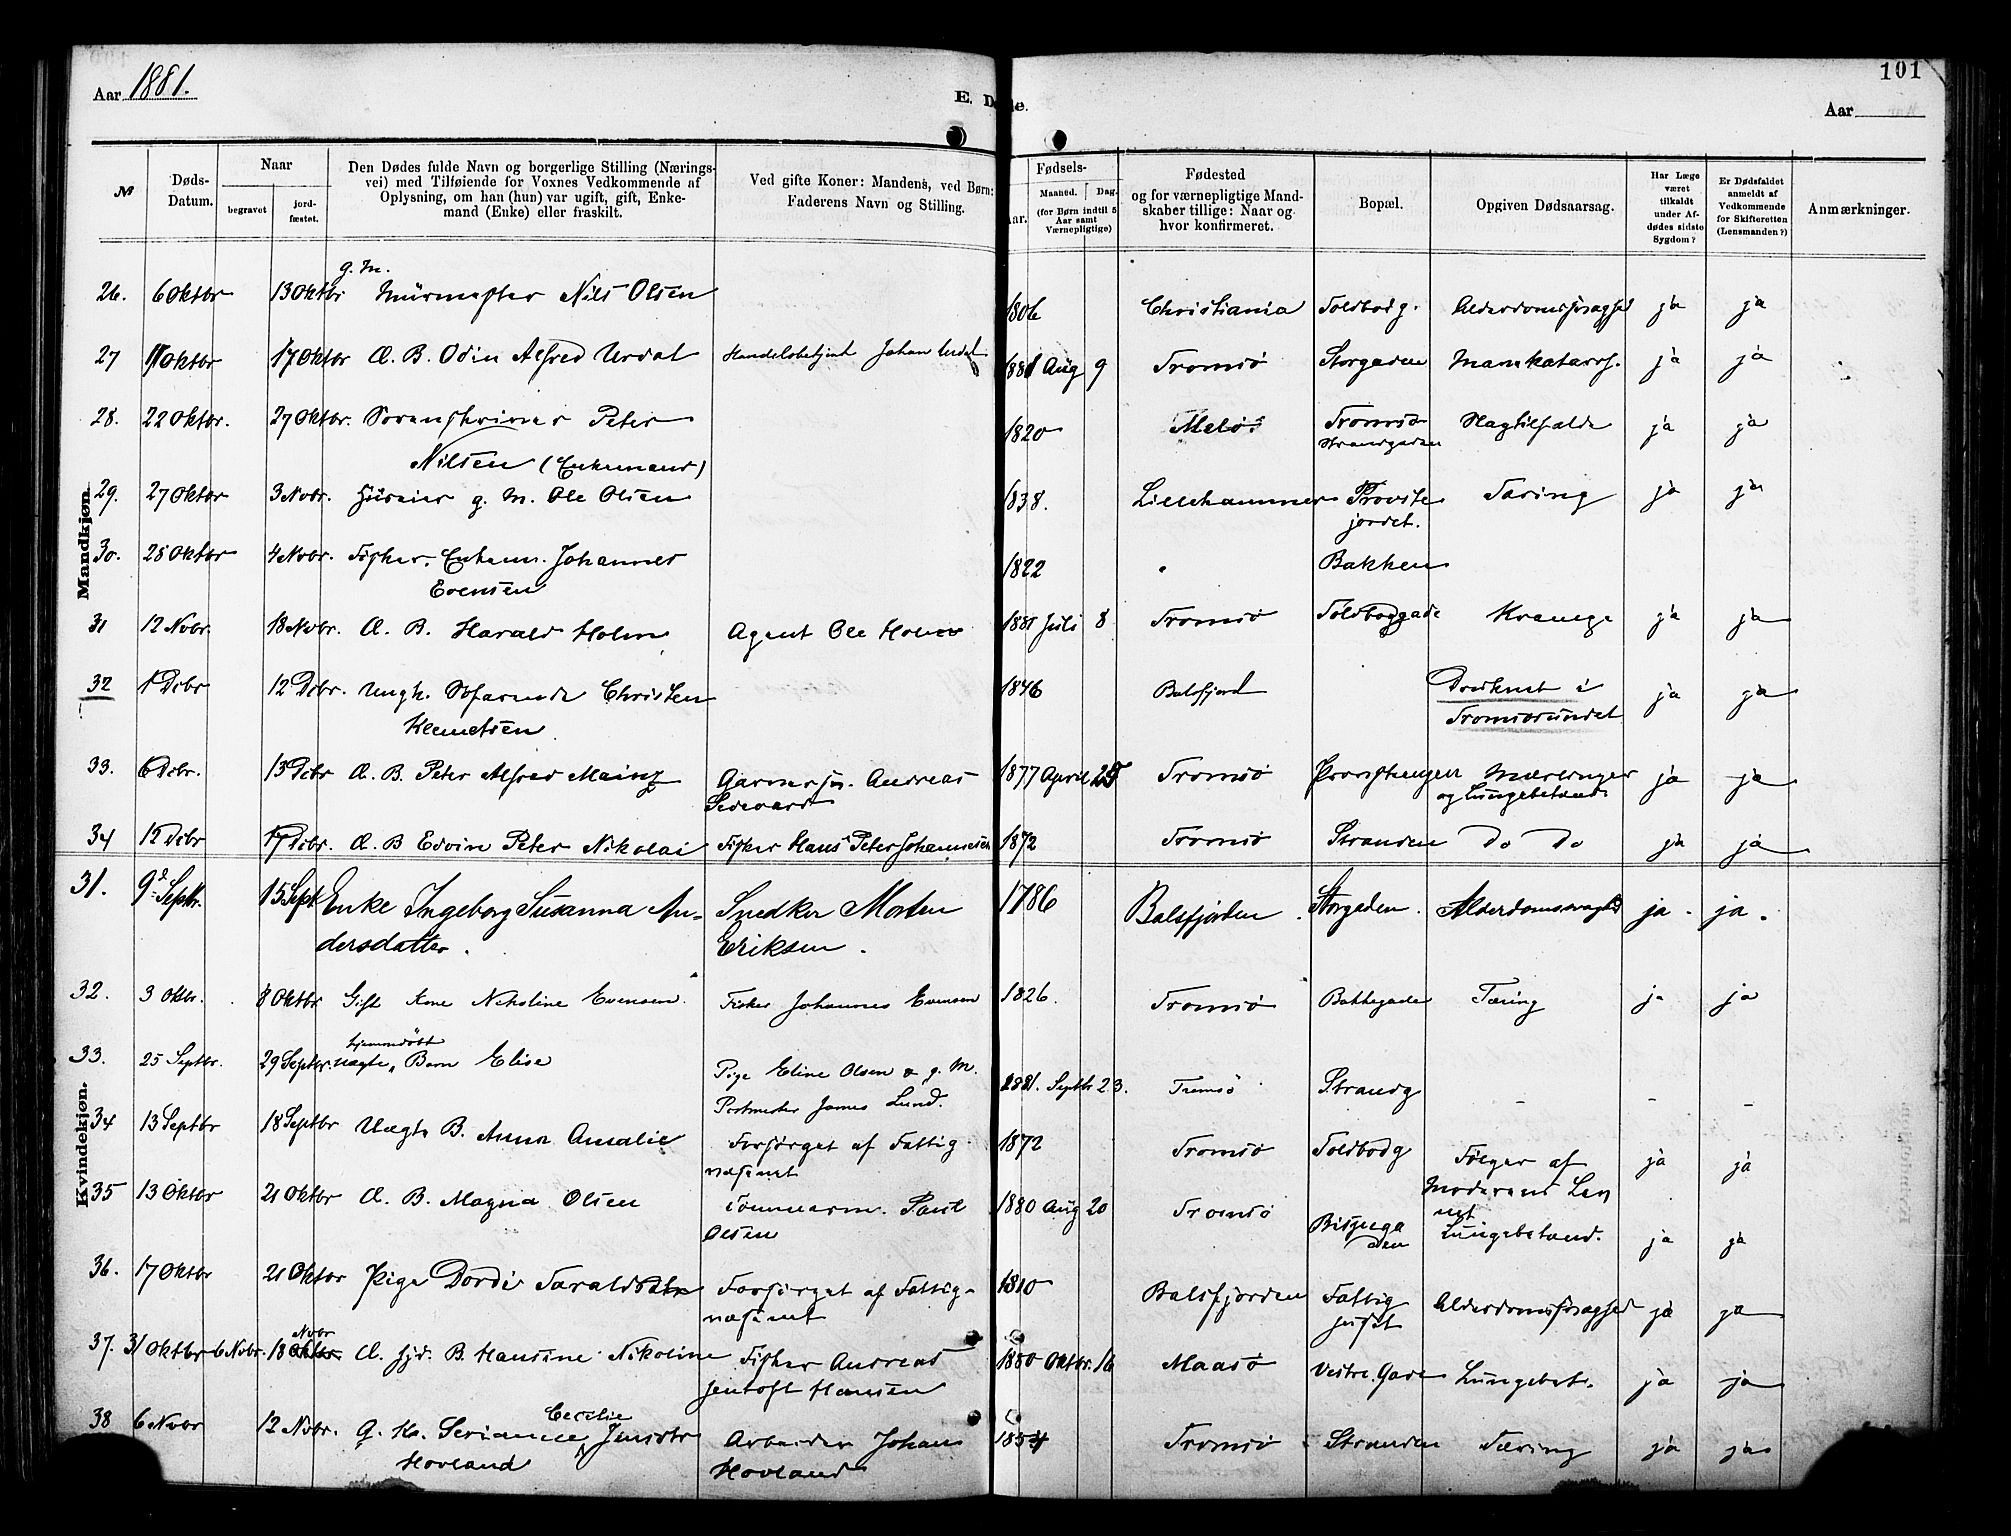 Aar 1881.
E. Døde.
101
Aar
№
Døds-Datum.
Naar
begravet
jord-fæstet.
Den Dødes fulde Navn og borgerlige Stilling (Nærings-
vei) med Tilføiende for Voxnes Vedkommende af
Oplysning, om han (hun) var ugift, gift, Enke-
mand (Enke) eller fraskilt.
Ved gifte Koner: Mandens, ved Børn:
Faderens Navn og Stilling.
Fødsels-
Aar.
Maaned.
Dag.
(for Børn indtil 5
Aar samt
Værnepligtige)
Fødested
og for værnepligtige Mand-
skaber tillige: Naar og
hvor konfirmeret.
Bopæl.
Opgiven Dødsaarsag.
Har Læge
været
tilkaldt
under Af-
dødes sidste
Sygdom?
Er Dødsfaldet
anmeldt af
Vedkommende
for Skifteretten
(Lensmanden?)
Anmærkninger.
Mandkjøn.
g. M.
26. 6 Oktbr 13 Oktbr Murmester Nils Olsen 1806 Christiania Toldbodg. Alderdomssvaghed ja ja
27 11 Oktbr 17 Oktbr Æ. B. Odin Alfred Urdal Handelsbetjent Johan Urdal 1881 Aug 9 Tromsø Storgaden ja ja
28. 22 Oktbr. 27 Oktbr. Peter 1820 Melø Tromsø Slagtilfælde ja ja
Nilsen (Enkemand) Strandgaden
29. 27 Oktbr 3 Novbr. g. M. Ole Olsen 1838. Lillehammer Provste Tæring ja ja
jordet.
30. 28 Oktbr 4 Novbr. Fisker, Enkem. Johannes 1822 Bakken
Evensen
31 12 Novbr. 18 Novbr. Æ. B. Harald Holm Agent Ole Holm 1881 Juli 8 Tromsø Toldbodgade Krampe ja ja
32 1 Dcbr 12 Dcbr. Ungk. Søfarende Christen 1846 Balsfjord Druknet i ja ja
Klemetsen Tromsøsundet
33. 6 Dcbr. 13 Dcbr Æ. B. Peter Alfred Mainz Garversv. Andreas 1877 April 25 Tromsø Mæslinger ja ja
Sedevard og Lungebetænd.
34 12 Dcbr 17 Dcbr. Æ. B Edvin Peter Nikolai Fisker Hans Peter Johannesen 1872 Tromsø Stranden do do ja ja
Kvindekjøn.
31. 9d Septbr. 15 Sept Enke Ingeborg Susanna An- Snedker Morten 1786 Balsfjorden. Storgaden. Alderdomssvaghd ja. ja.
dersdatter. Eriksen.
32. 3 Oktbr. 8 Oktbr Gift Kone Nikoline Evensen. Fisker Johannes Evensen 1826. Tromsø Bakkegaden Tæring ja ja
hjemmedøbt
33. 25 Septbr. 29 Septbr. uægte Barn Elise Pige Eline Olsen & g. M. 1881. Septbr 23. Tromsø Strandg - - -
Postmester James Lund.
34 13 Septbr 18 Septbr Uægte B. Anna Amalie Forsørget af Fattig- 1872 Tromsø Toldbodg Følger af ja ja
væsenet
35 13 Oktbr 21 Oktbr Æ. B. Magna Olsen Tømmerm. Paul 1880 Aug 20 Tromsø Bispega
Olsen den Lungebetænd. ja ja
36. 17 Oktbr 21 Oktbr Pige Dordi Taraldsdtr Forsørget af Fattig- 1810 Balsfjorden Fattig Alderdomssvaghed ja ja
væsenet huset
Novbr
37. 31 Oktbr 6 Novbr. 18 Oktbr Æ. hjd. B. Hansine Nikoline Fisker Andreas 1880 Oktbr. 16 Maasø Vestre. Gade Lungebet. ja ja
Jentoft Hansen
Cecilie
38 6 Novbr 12 Novbr. G. K. Serianne Jensdtr Arbeider Johan 1854 Tromsø Stranden Tæring ja ja
Hovland Hovland